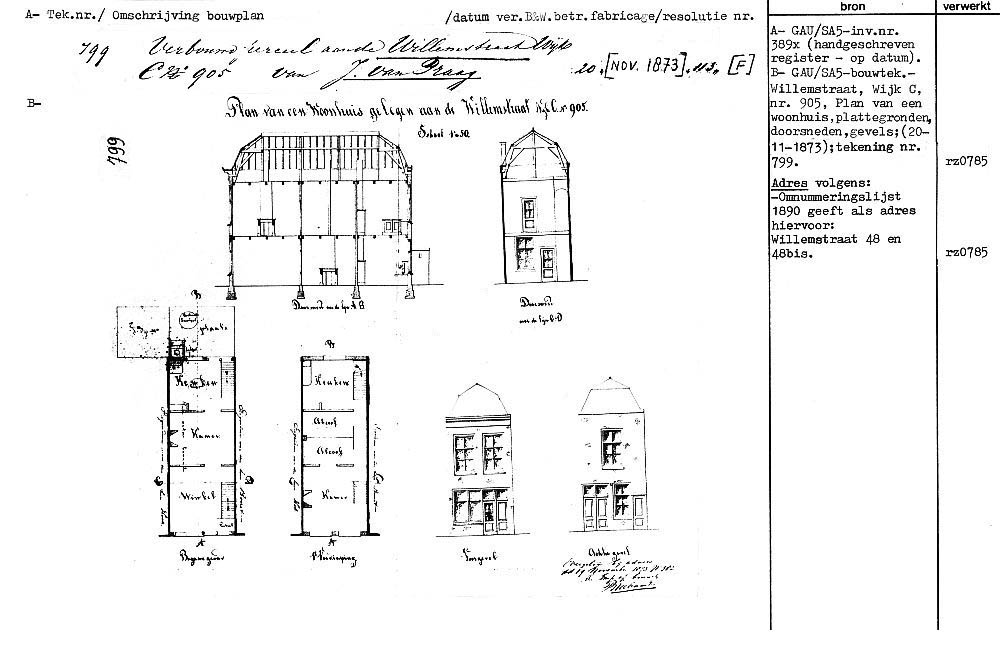 A- Tek.nr./ Omschrijving bouwplan /datum ver.B&W.betr.fabricage/resolutie nr.
bron
verwerkt
799 Verbouwing van een perceel aan de Willemstraat Wijk
C No 905 van J. van Praag 20.[NOV. 1873]. [F]
B-
799
Plan van een Woonhuis gelegen aan de Willemstraat Wijk C No 905.
Schaal 1 à 50.
Doorsnede
Doorsnede
plaats
Keuken
Kamer
Winkel
Keuken
Alcoof
Alcoof
Kamer
B
A
B
A
Voorgevel
Achtergevel
A- GAU/SA5-inv.nr.
389x (handgeschreven
register - op datum).
B- GAU/SA5-bouwtek.-
Willemstraat, Wijk C,
nr. 905, Plan van een
woonhuis,plattegronden,
doorsneden,gevels;(20-
11-1873);tekening nr.
799.
rz0785
Adres volgens:
-Omnummeringslijst
1890 geeft als adres
hiervoor:
Willemstraat 48 en
48bis.
rz0785